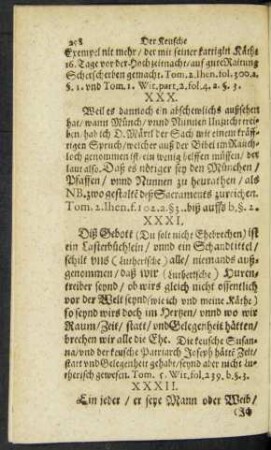 258 Der Keusche
Exempel nit mehr/ der mit seiner
16. Tage vor der Hochzeitnacht/ auf gute Raitung
gemacht. Tom. 2. Ihen. fol. 300. 2.
§. 1. vnd Tom. 1. Wit. part. 2. fol. 4. 2. §. 3.
XXX.
Weil es dannoch ein abschewlichs aussehen
hat/ wann Münch/ vnnd Nunnen Unzucht trei-
ben/ hab ich D. Märtl der Sach mit einem kräff-
tigen Spruch/ welcher auß der Bibel im Rauch-
loch genommen ist/ ein wenig helffen müssen/ der
laut also. Daß es nötiger sey den München/
Pfaffen/ vnnd Nunnen zu heurathen/ als
NB. zwo gestalt deß Sacraments zureichen.
Tom. 2. Ihen. f. 102. 2. §. 3. biß auffs b. §. 2.
XXXI.
Diß Gebott (Du solt nicht Ehebrechen) ist
ein Lasterbüchlein/ vnnd ein Schandtittel/
schilt vns (Lutherische) alle/ niemands auß-
genommen/ daß wir (Lutherische) Huren-
treiber seynd/ ob wirs gleich nicht offentlich
vor der Welt seynd/ wie ich vnd meine Käthe)
so seynd wirs doch im Hertzen/ vnnd wo wir
Raum/ Zeit/ statt/ vnd Gelegenheit hätten/
brechen wir alle die Ehe. Die keusche Susan-
na/ vnd der keusche Patriarch Joseph hätte Zeit/
statt vnd Gelegenheit gehabt/ seynd aber nicht Lu-
therisch gewesen. Tom. 5. Wit. fol. 239. b. §. 3.
XXXII.
Ein jeder/ er seye Mann oder Weib/